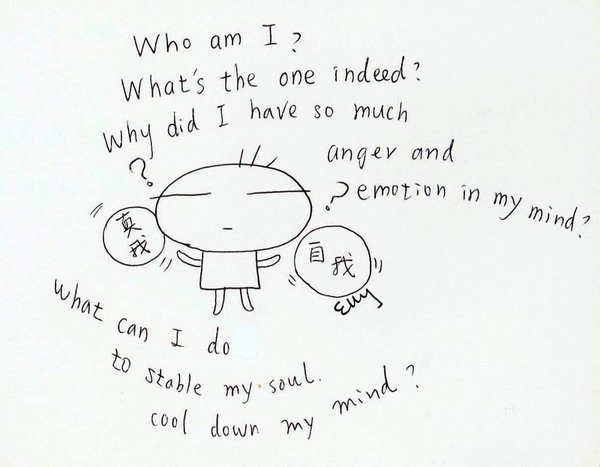 Who am I?
What's the one indeed?
Why did I have so much
anger and
emotion in my mind?
?
?
真
我
自我
Elly
What can I do
to stable my soul.
cool down my mind?